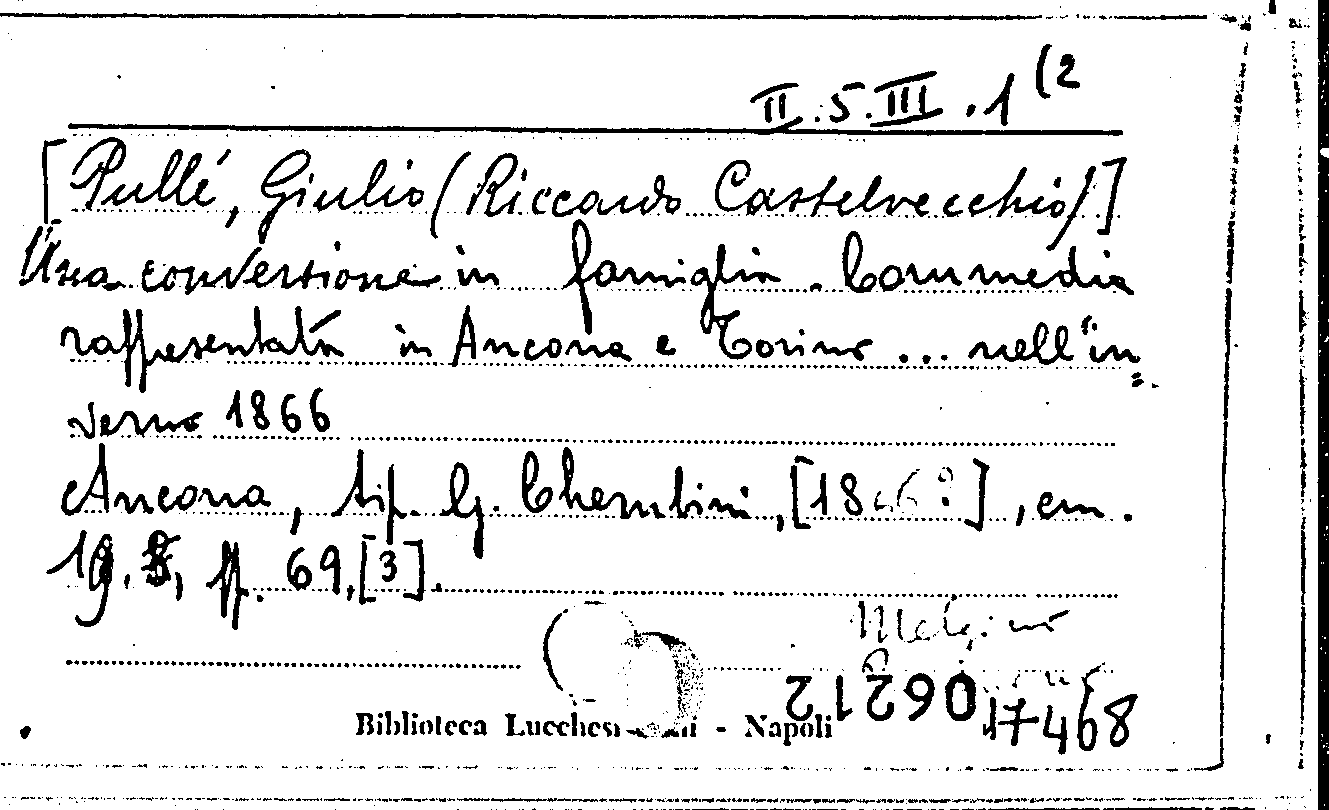 II.5.III.1 (2
[Pullé, Giulio (Riccardo Castelvecchio)]
Una conversione in famiglia. Commedia
rappresentata in Ancona e Torino ... nell'in
verno 1866
Ancona, tip. G. Cherubini, [1866?], cm.
19.5, pp. 69, [3].
Biblioteca Lucchesi - Napoli
17468